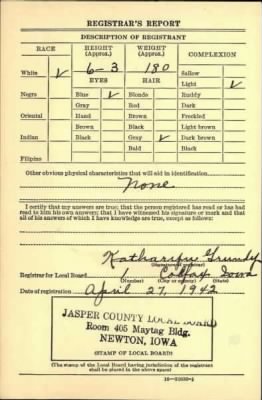 REGISTRAR'S REPORT
DESCRIPTION OF REGISTRANT
RACE HEIGHT (Approx.) WEIGHT (Approx.) COMPLEXION
White ✓ 6-3 180 Sallow
EYES HAIR Light ✓
Negro Blue ✓ Blonde Ruddy
Gray Red Dark
Oriental Hazel Brown Freckled
Brown Black Light brown
Indian Black Gray ✓ Dark brown
Bald Black
Filipino
Other obvious physical characteristics that will aid in identification
None
I certify that my answers are true; that the person registered has read or has had
read to him his own answers; that I have witnessed his signature or mark and that
all of his answers of which I have knowledge are true, except as follows:
Grundy
(Signature of registrar)
Registrar for Local Board 1 Colfax, Iowa
(Number) (City or county) (State)
Date of registration April 27, 1942
JASPER COUNTY LOCAL BOARD
Room 405 Maytag Bldg.
NEWTON, IOWA
(STAMP OF LOCAL BOARD)
(The stamp of the Local Board having jurisdiction of the registrant
shall be placed in the above space)